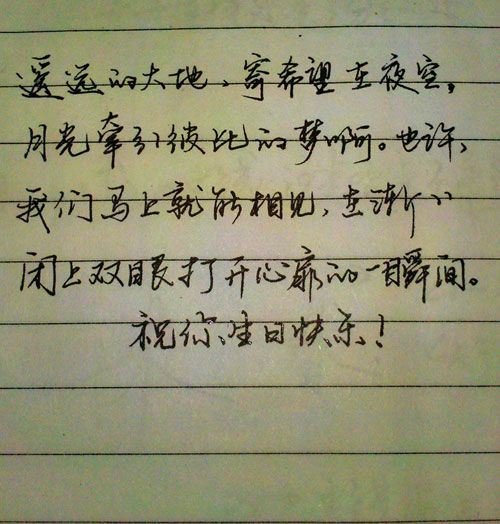 遥远的大地、寄希望在夜空,
月光牵引彼此的梦啊。也许、
我们马上就能相见、在渐渐
闭上双眼打开心扉的一瞬间。
祝你、生日快乐!